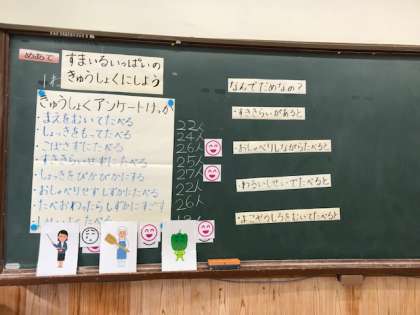 めあて
すまいるいっぱいの
きゅうしょくにしよう
きゅうしょくアンケートけっか
・まえをむいてたべる
22人
・しょっきをもってたべる
24人
・こぼさずにたべる
26人
・すききらいせずにたべる
25人
・しょっきをぴかぴかにする
27人
・おしゃべりせずしずかにたべる
22人
・たべおわったらしずかにすごす
26人
なんでだめなの?
・すききらいがあると
・おしゃべりしながらたべると
・わるいしせいでたべると
・よこやうしろをむいてたべると